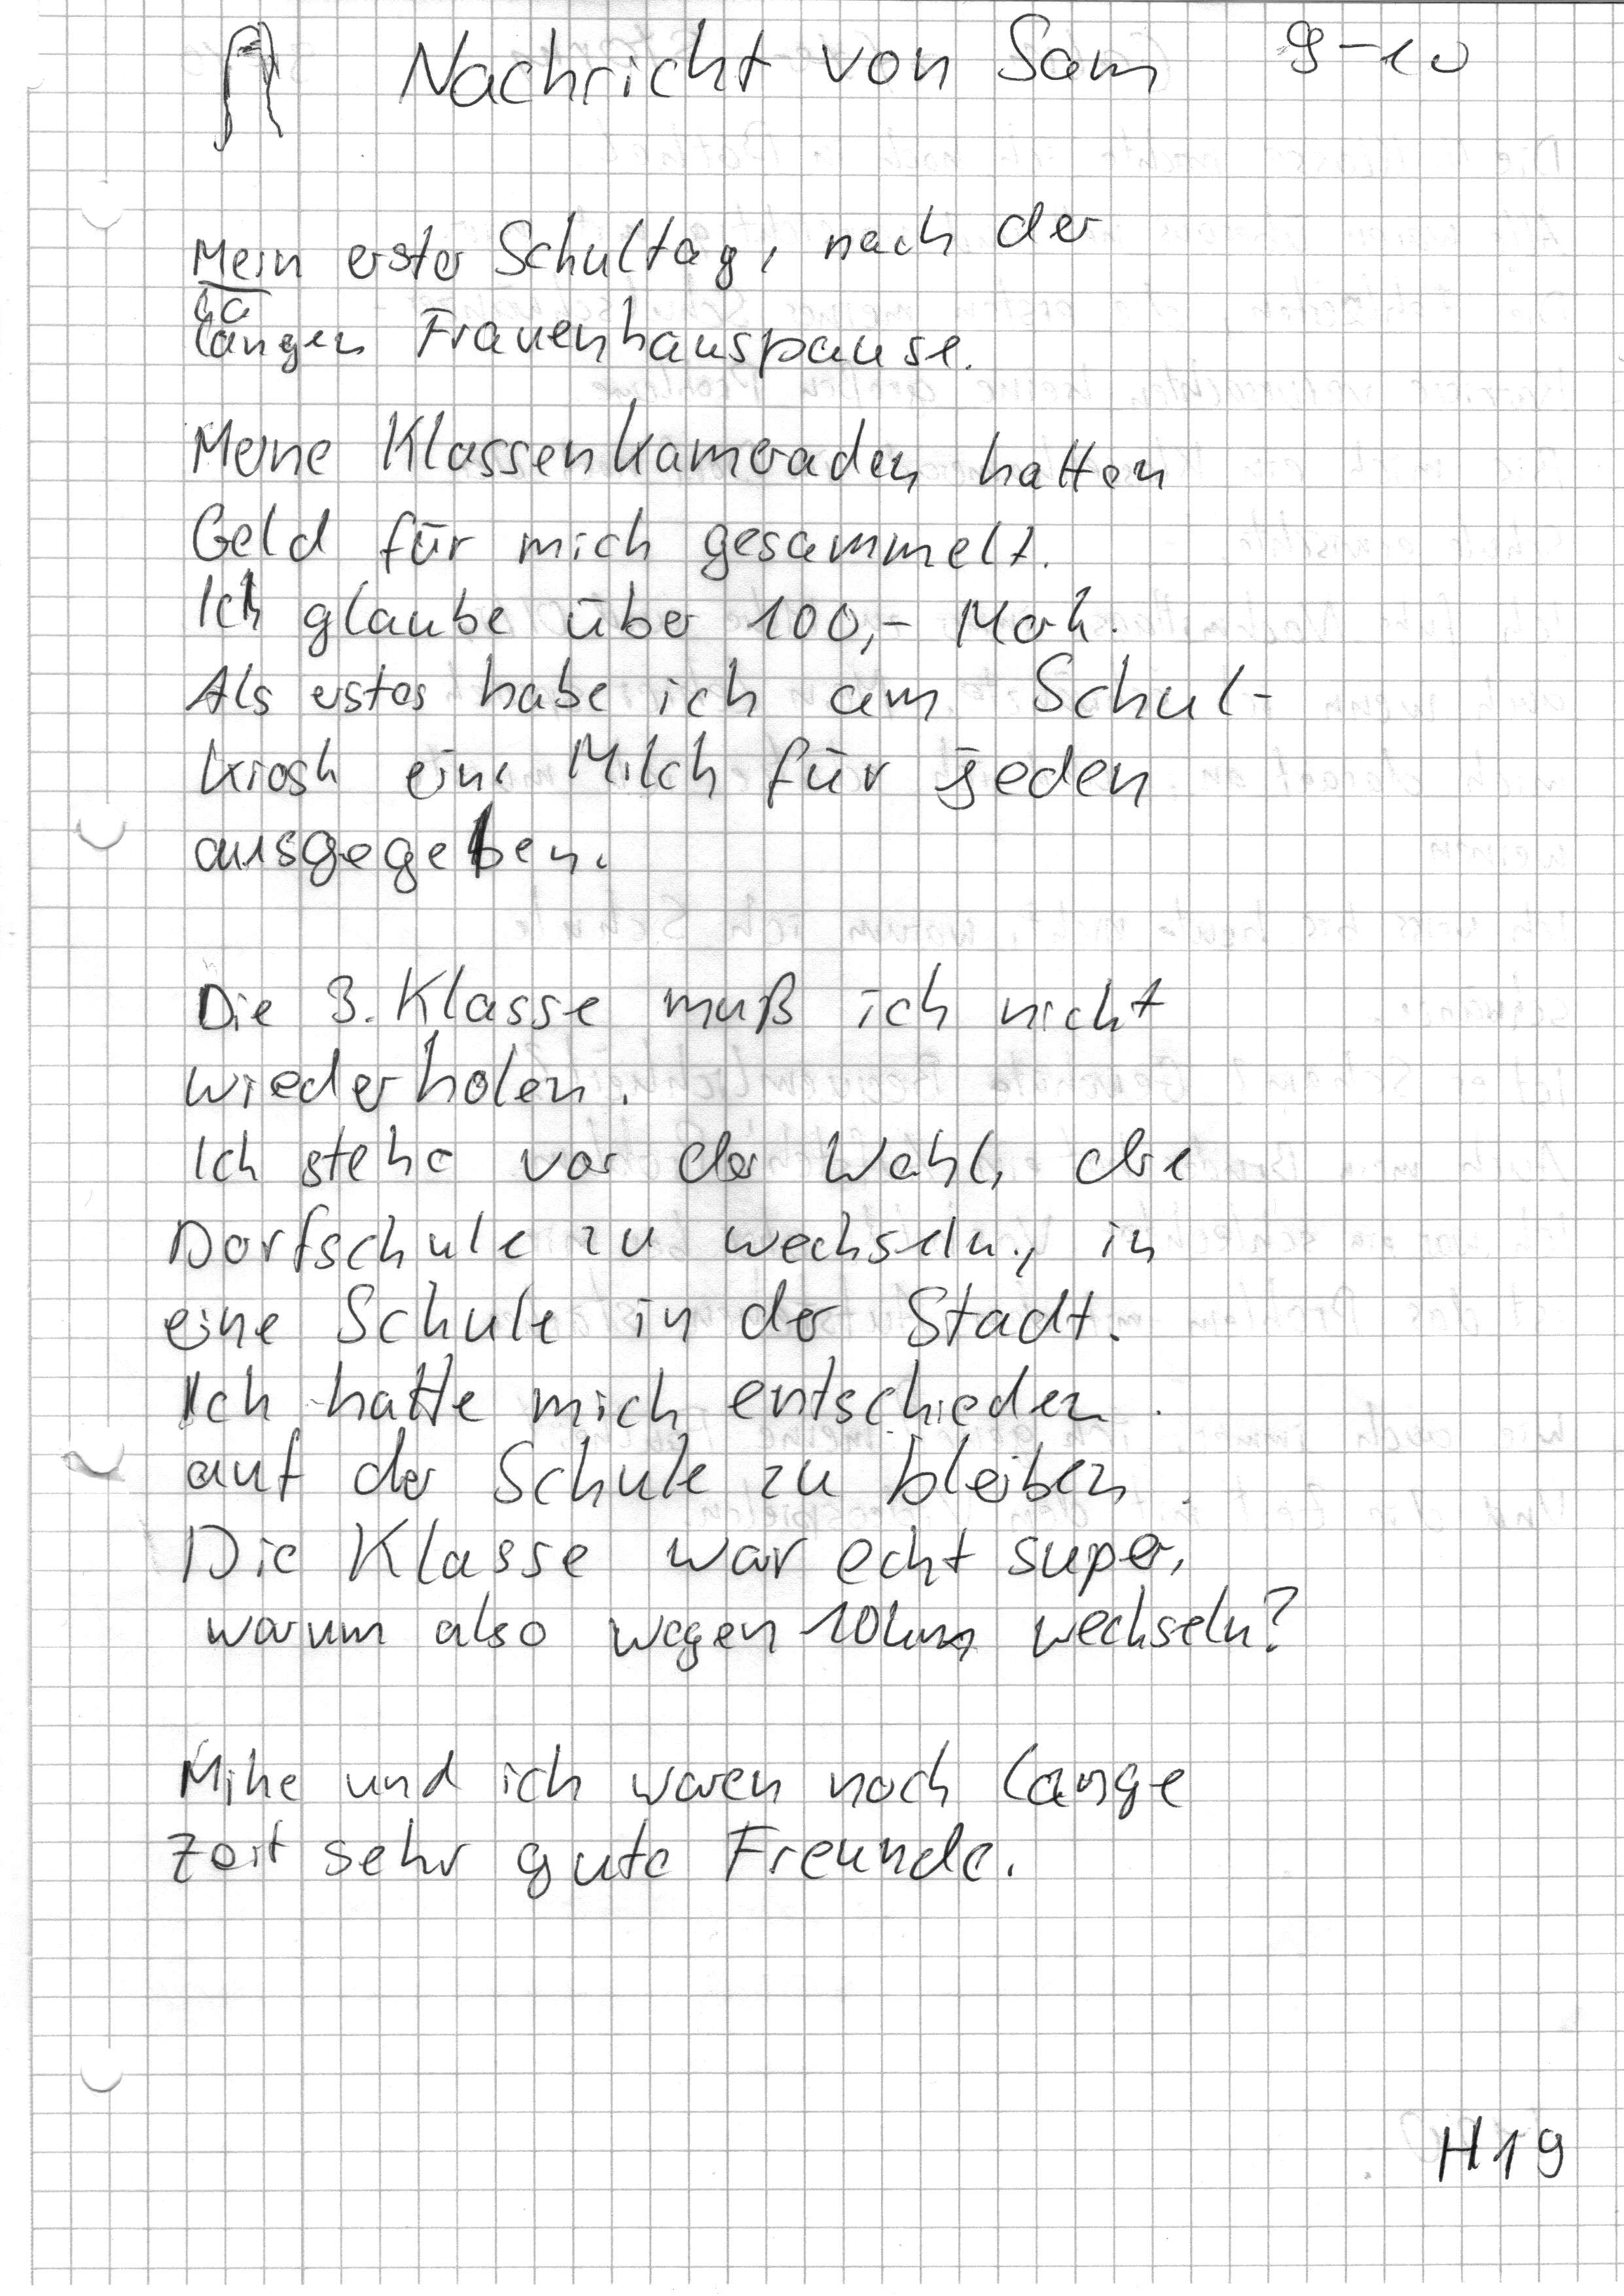 Nachricht von Sam 9-10
Mein erster Schultag, nach der
la
langen Frauenhauspause.
Meine Klassenkameraden hatten
Geld für mich gesammelt.
Ich glaube über 100,- Mark.
Als erstes habe ich am Schul-
kiosk eine Milch für jeden
ausgegeben.
Die 3. Klasse muß ich nicht
wiederholen.
Ich stehe vor der Wahl, die
Dorfschule zu wechseln, in
eine Schule in der Stadt.
Ich hatte mich entschieden
auf der Schule zu bleiben.
Die Klasse war echt super,
warum also wegen 10km wechseln?
Mike und ich waren noch lange
Zeit sehr gute Freunde.
H19